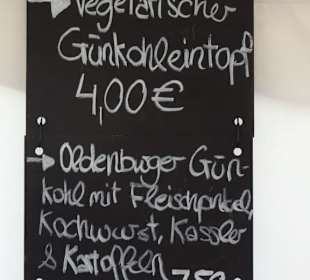 → Vegetarischer
Günkohleintopf
4,00€
→ Oldenburger Gün-
kohl mit Fleischpinkel,
Kochwurst, Kassler
& Kartoffeln 7,50